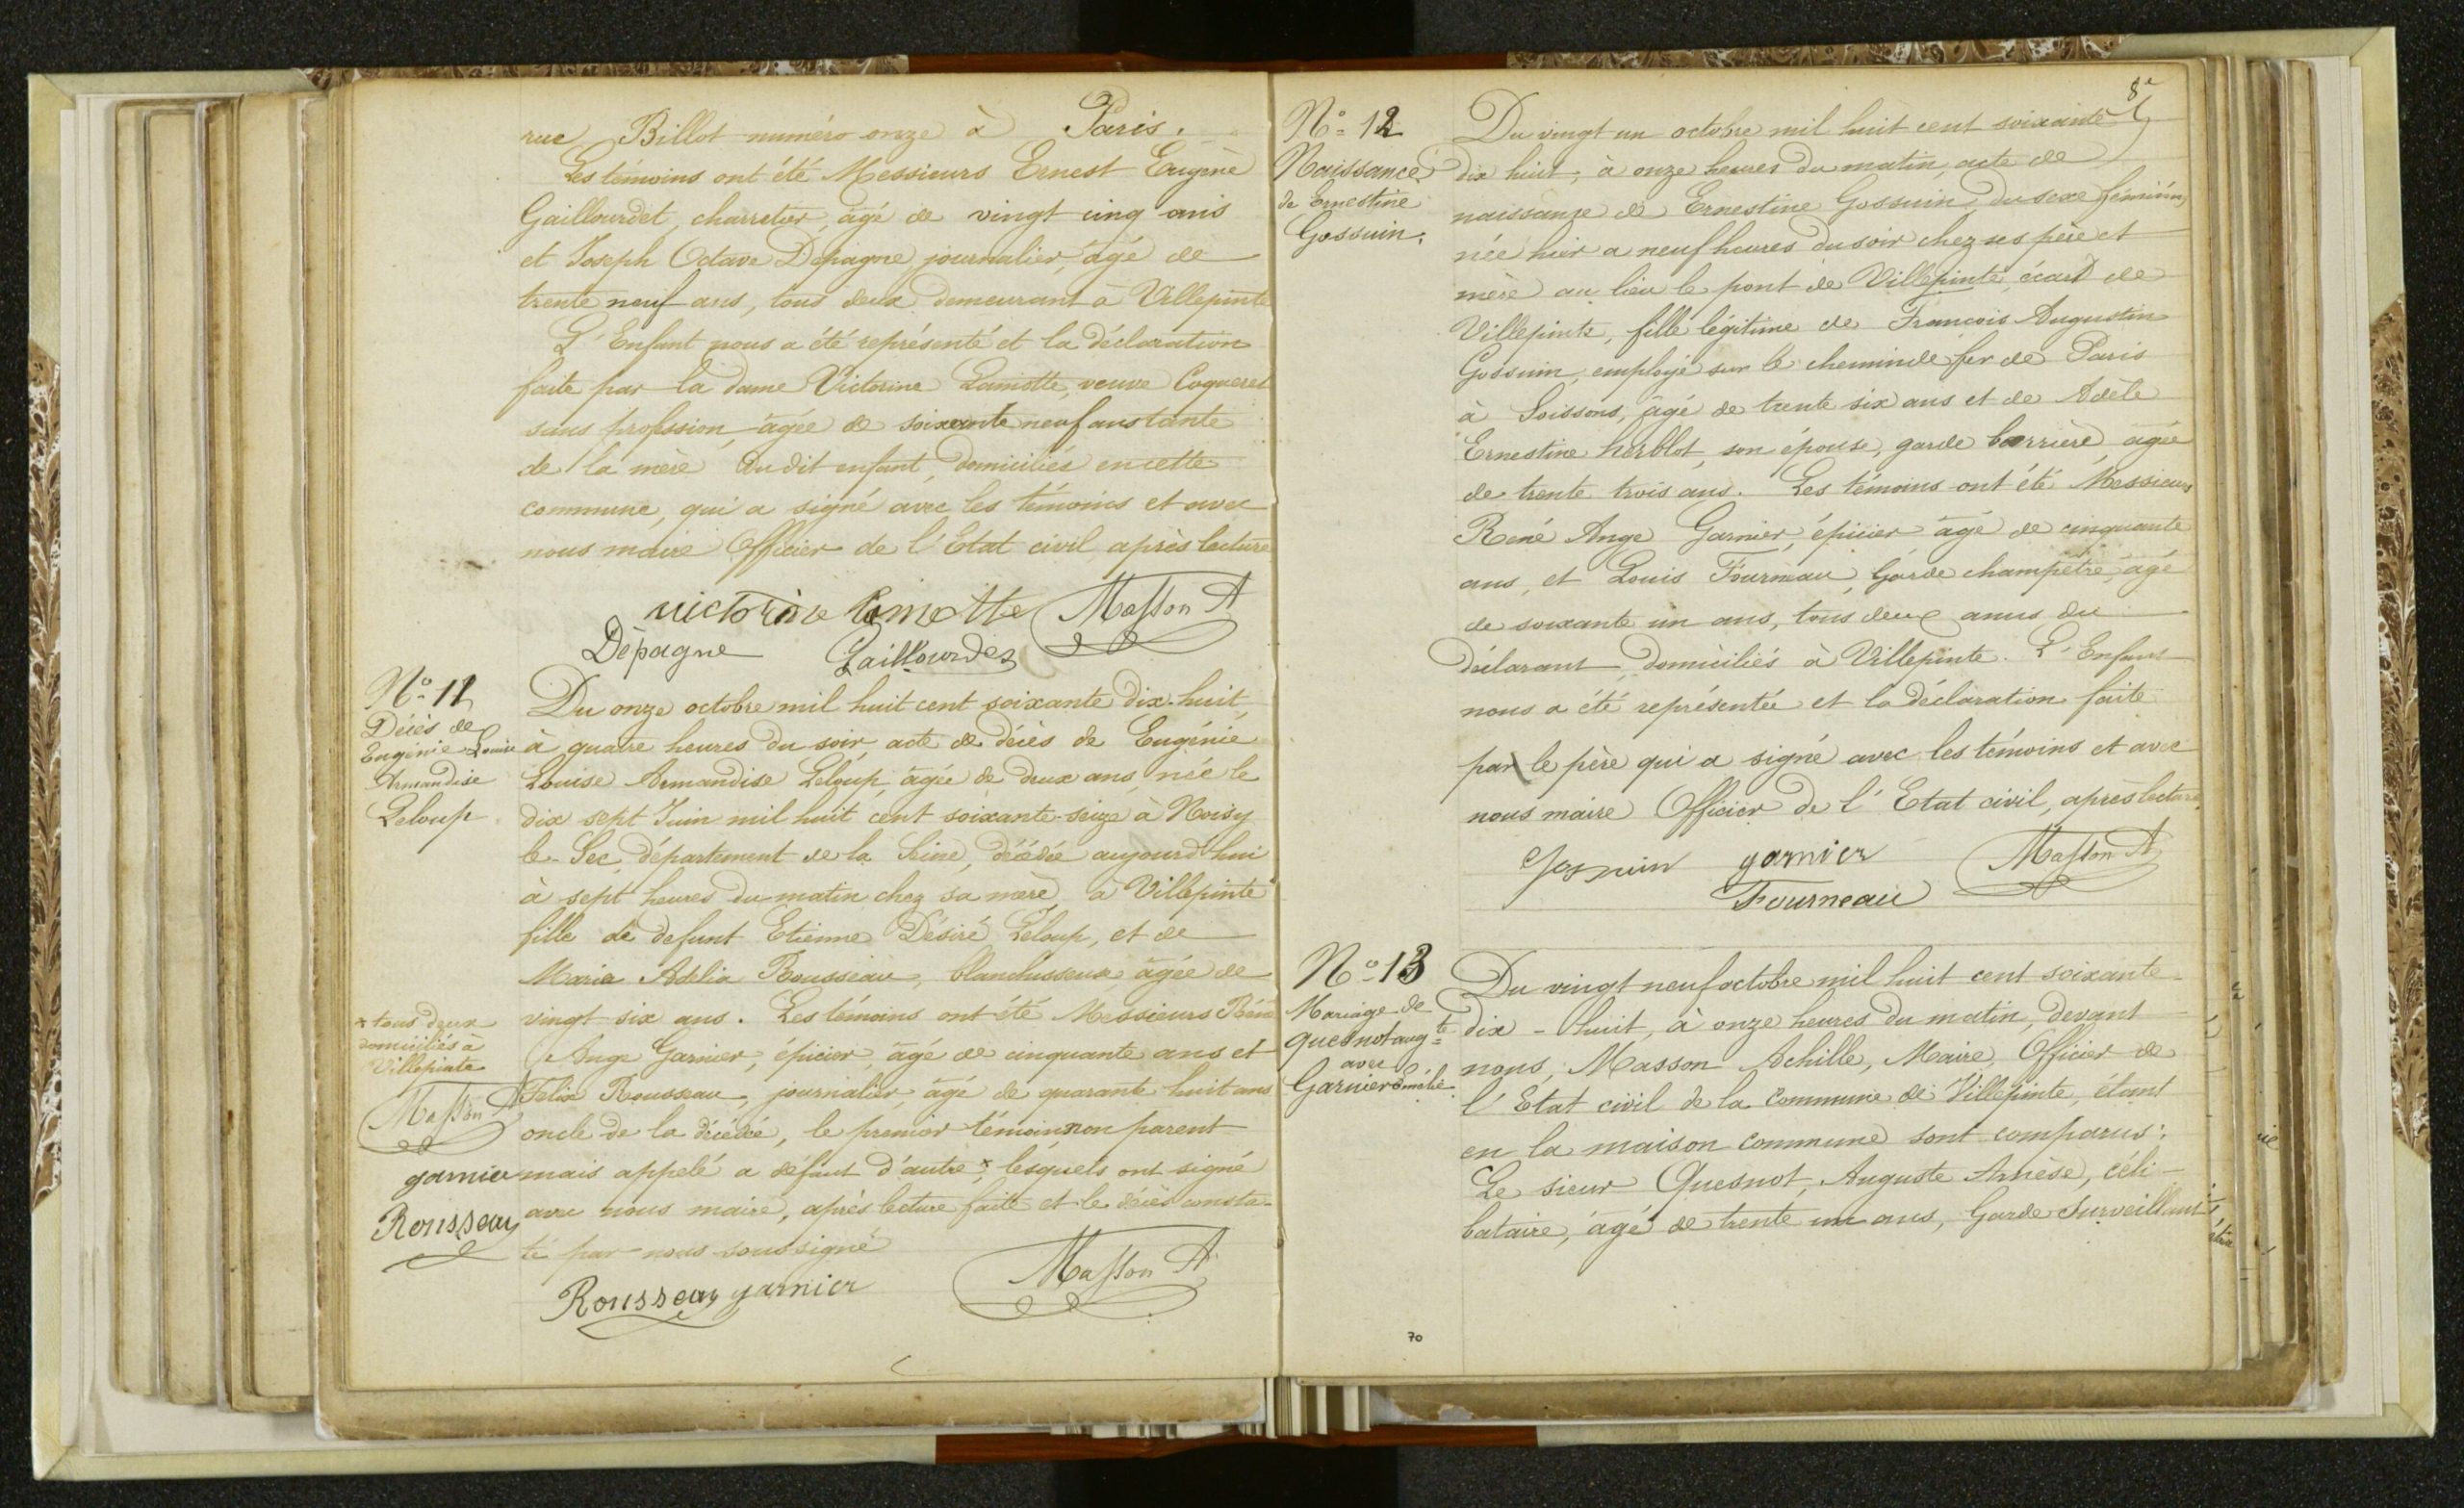 rue Billot numéro onze à Paris.
Les témoins ont été Messieurs Ernest Eugène
Gaillourdet, charretier, âgé de vingt cinq ans
et Joseph Octave Dépagne, journalier, âgé de
trente neuf ans, tous deux demeurant à Villepinte
L'Enfant nous a été représenté et la déclaration
faite par la dame Victorine Lamotte, veuve Coqueret
sans profession, âgée de soixante neuf ans tante
de la mère du dit enfant, domiciliés en cette
commune, qui a signé avec les témoins et avec
nous maire Officier de l'Etat civil, après lecture
victorine lamotte Masson A
Dépagne Gaillourdet
N° 11
Décès de
Eugénie Louise
Armandise
Leloup
Du onze octobre mil huit cent soixante dix-huit,
à quatre heures du soir, acte de décès de Eugénie
Louise Armandise Leloup, âgée de deux ans, née le
dix sept Juin mil huit cent soixante-seize à Noisy
le-Sec, département de la Seine, décédée aujourd'hui
à sept heures du matin chez sa mère, à Villepinte
fille de defunt Etienne Désiré Leloup, et de
Marie Adélia Rousseau, blanchisseuse, âgée de
vingt six ans. Les témoins ont été Messieurs René
Ange Garnier, épicier, âgé de cinquante ans et
Felix Rousseau, journalier, âgé de quarante huit ans
oncle de la décédée, le premier témoin non parent
mais appelé a défaut d'autre *, lesquels ont signé
avec nous maire, après lecture faite et le décès consta-
té par nous soussigné
* tous deux
domiciliés à
Villepinte
Masson A
garnier
Rousseau
Rousseau garnier Masson A
8e
N° 12
Naissance
de Ernestine
Gossuin.
Du vingt un octobre mil huit cent soixante
dix huit, à onze heures du matin, acte de
naissance de Ernestine Gossuin, du sexe féminin,
née hier a neuf heures du soir chez ses père et
mère au lieu le pont de Villepinte, écart de
Villepinte, fille légitime de François Augustin
Gossuin, employé sur le chemin de fer de Paris
à Soissons, âgé de trente six ans et de Adèle
Ernestine herblot, son épouse, garde barrière, âgée
de trente trois ans. Les témoins ont été Messieurs
René Ange Garnier, épicier âgé de cinquante
ans, et Louis Fourneau, Garde champêtre, âgé
de soixante un ans, tous deux amis du
déclarant, domiciliés à Villepinte. L'Enfant
nous a été représentée et la déclaration faite
par le père qui a signé avec les témoins et avec
nous maire Officier de l'Etat civil, après lecture.
Gossuin garnier Masson A
Fourneau
N° 13
Mariage de
Quesnot augte
avec
Garnier Emélie
Du vingt neuf octobre mil huit cent soixante
dix-huit, à onze heures du matin, devant
nous, Masson Achille, Maire, Officier de
l'Etat civil de la Commune de Villepinte, étant
en la maison commune sont comparus:
Le sieur Quesnot, Auguste Arnèse, céli-
bataire, âgé de trente un ans, Garde Surveillant
70